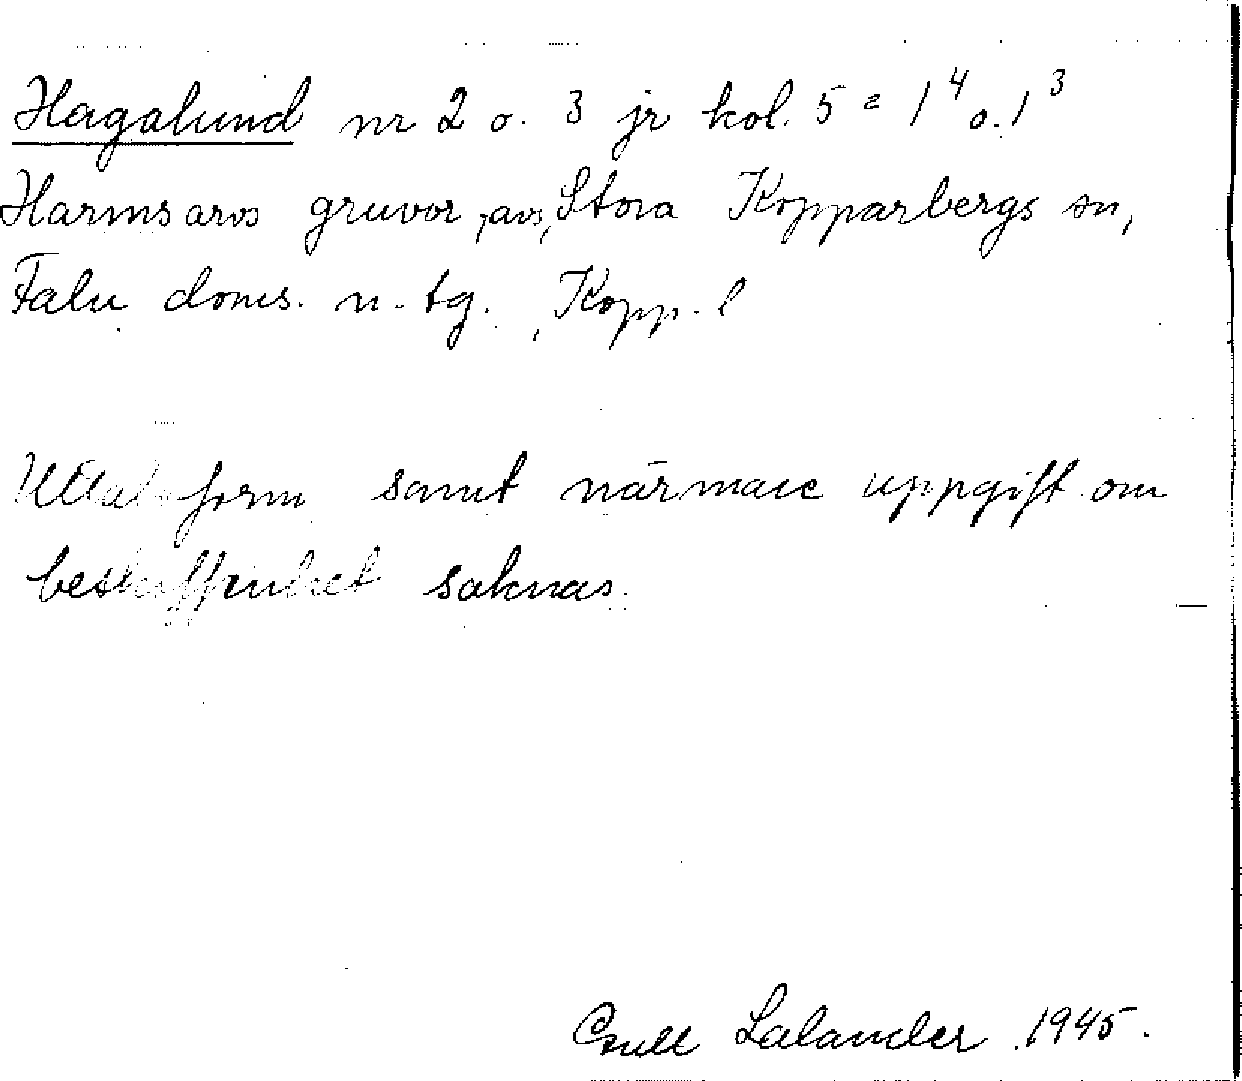 Hagalund nr 2 o. 3 jr kol. 5 = 1⁴ o. 1³
Harmsarvs gruvor, avs, Stora Kopparbergs sn,
Falu doms. n. tg., Kopp. l
Uttalsform samt närmare uppgift om
beskaffenhet saknas.
Lalander 1945.